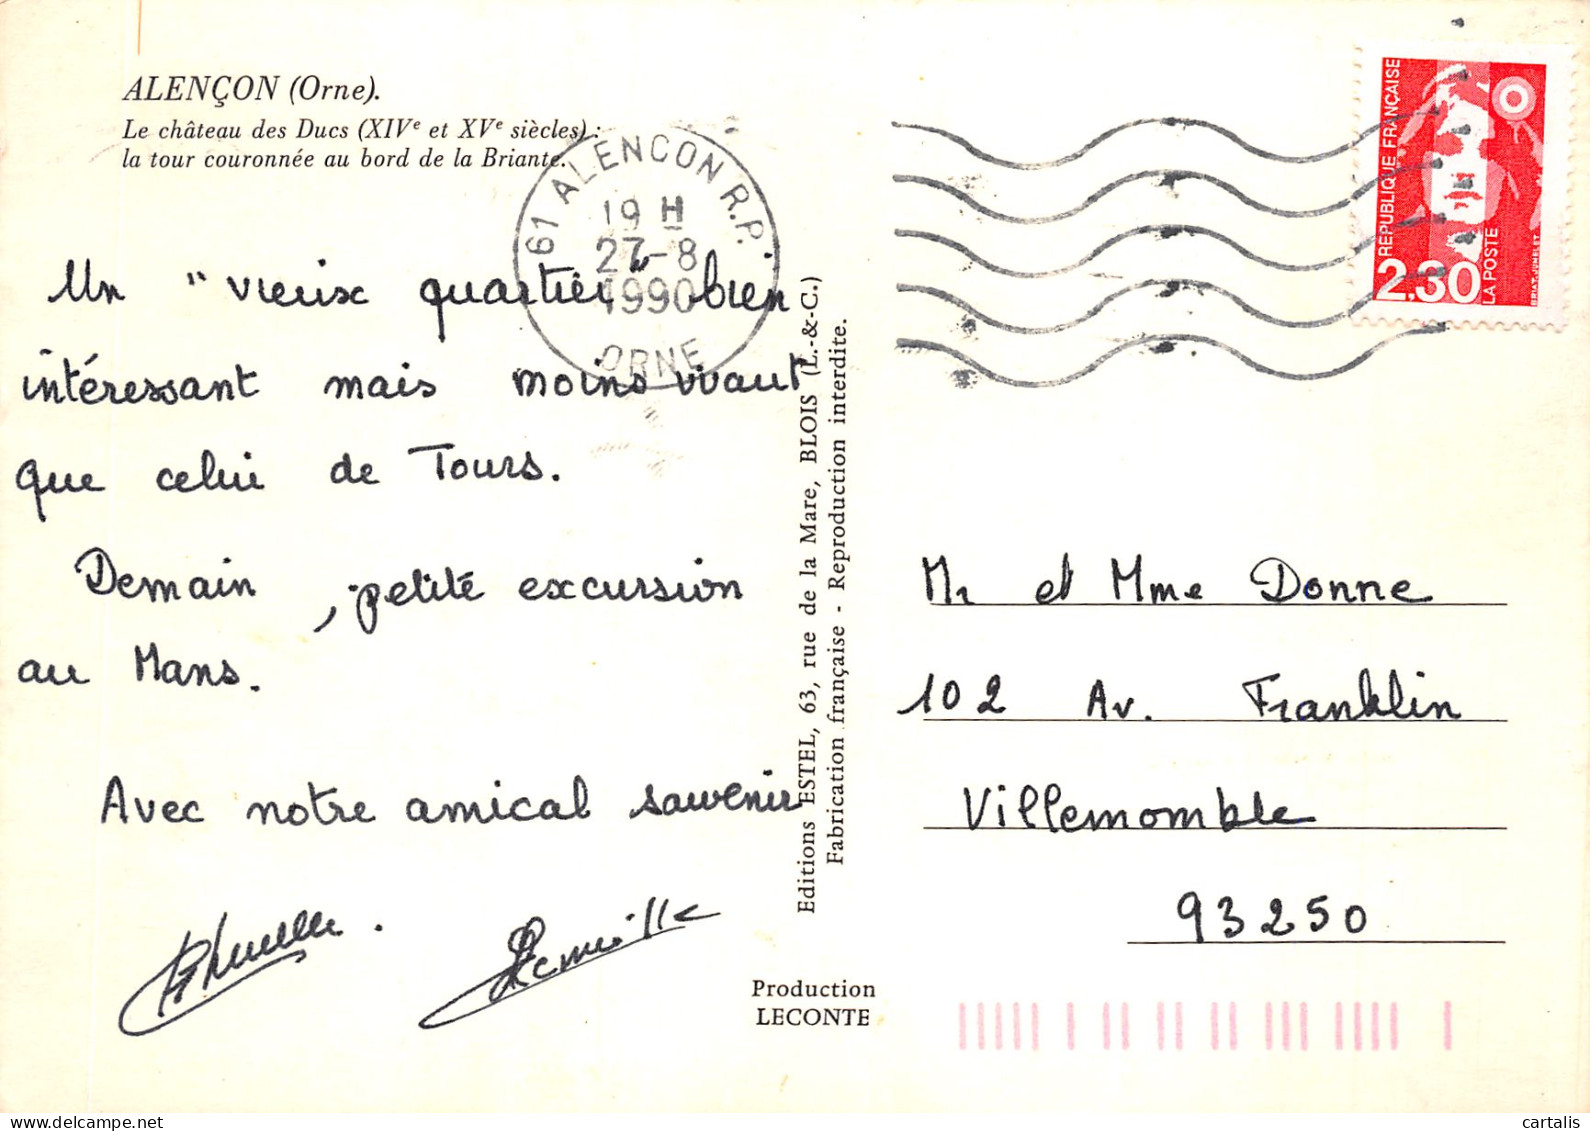 ALENÇON (Orne).
Le château des Ducs (XIVe et XVe siècles) :
la tour couronnée au bord de la Briante.
61 ALENCON R.P.
19 H
27-8
1990
ORNE
RÉPUBLIQUE FRANÇAISE
2,30
LA POSTE
BRIAT-JUMELET
Un "vieux quartier bien
intéressant mais moins vivant
que celui de Tours.
Demain, petite excursion
au Mans.
Avec notre amical souvenir
Editions ESTEL, 63, rue de la Mare, BLOIS (L.-&-C.)
Fabrication française - Reproduction interdite.
Mr et Mme Donne
102 Av. Franklin
Villemomble
93250
Production
LECONTE
cartalis